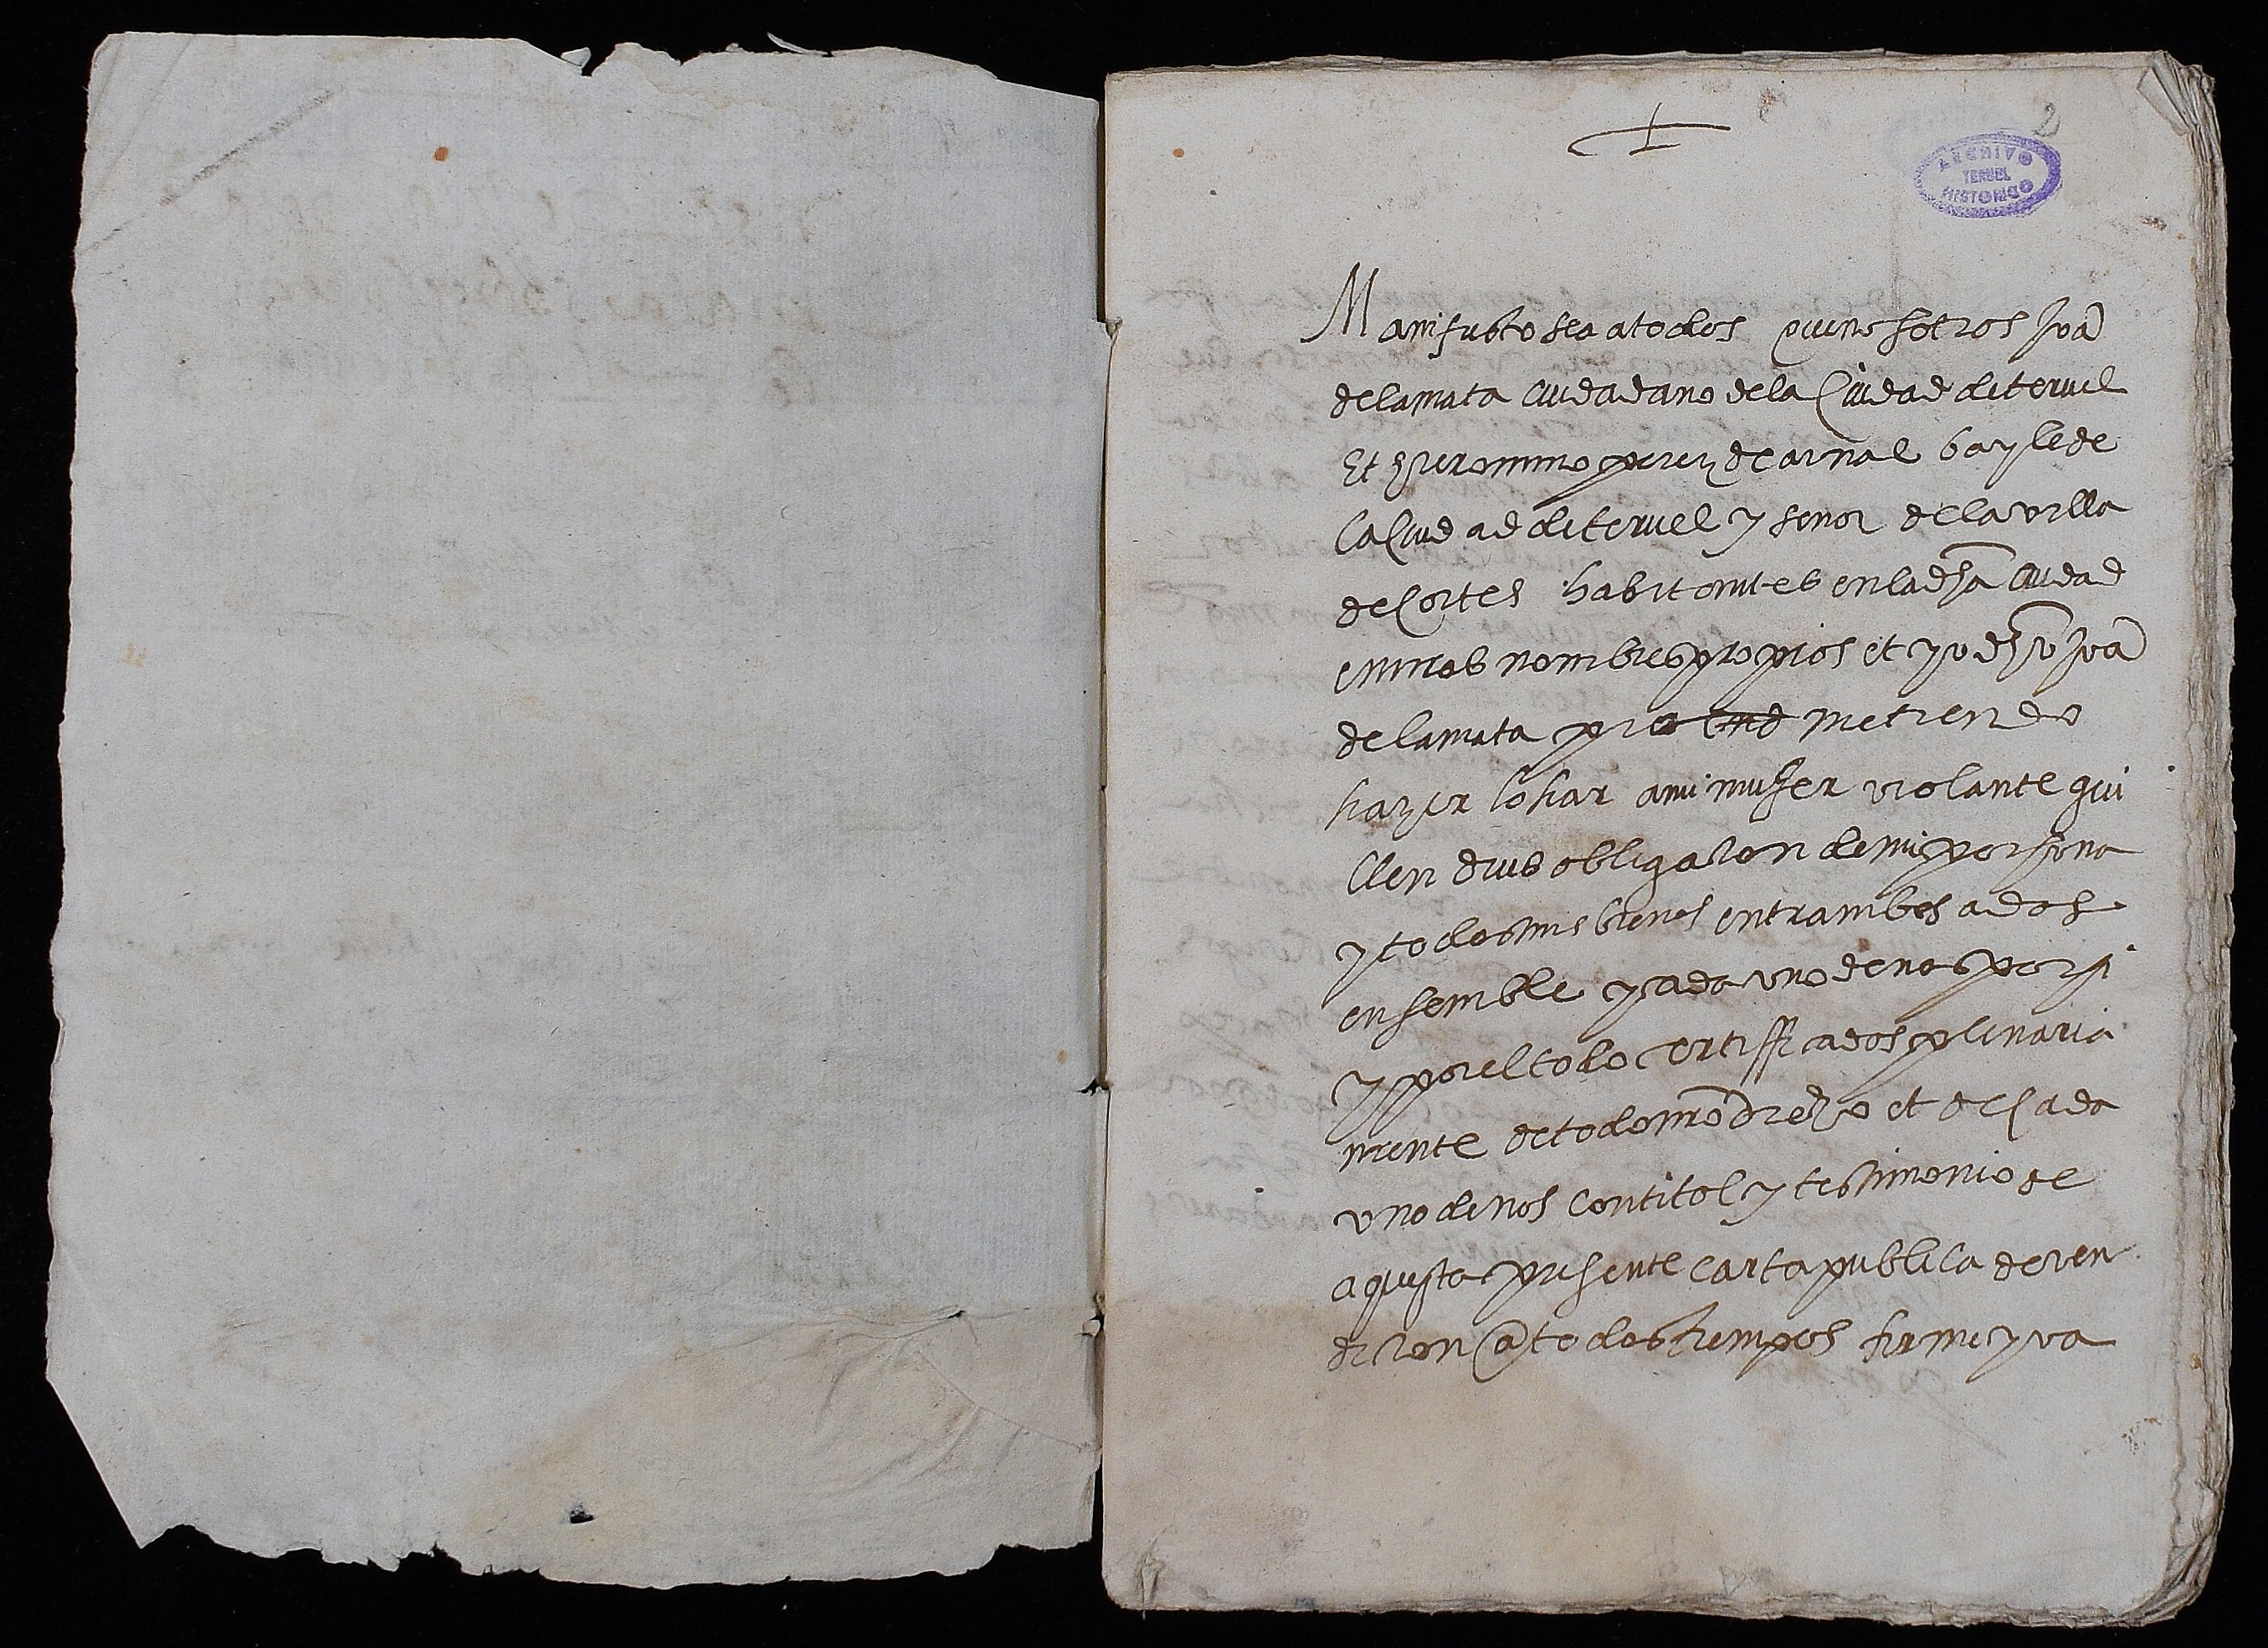 2
ARCHIVO
TERUEL
HISTORICO
Manifiesto sea a todos que nosotros Joã
de la mata ciudadano de la Ciudad de teruel
Et Hieronimo perez de arnal bayle de
la Ciudad de teruel y senor de la villa
de Cortes habitantes en la dhã ciudad
en nros nombres propios et yo dhõ Joã
de la mata pro metiendo
hazer lohar a mi muger violante gui
llen dius obligacion de mi persona
y todos mis bienes entrambos a dos
ensemble y cada uno de nos por si
y por el todo certifficados plenaria
mente de todo nrõ drecho et de cada
uno de nos con titol y testimonio de
aquesta presente carta publica de ven
dicion a todos tiempos firme y va